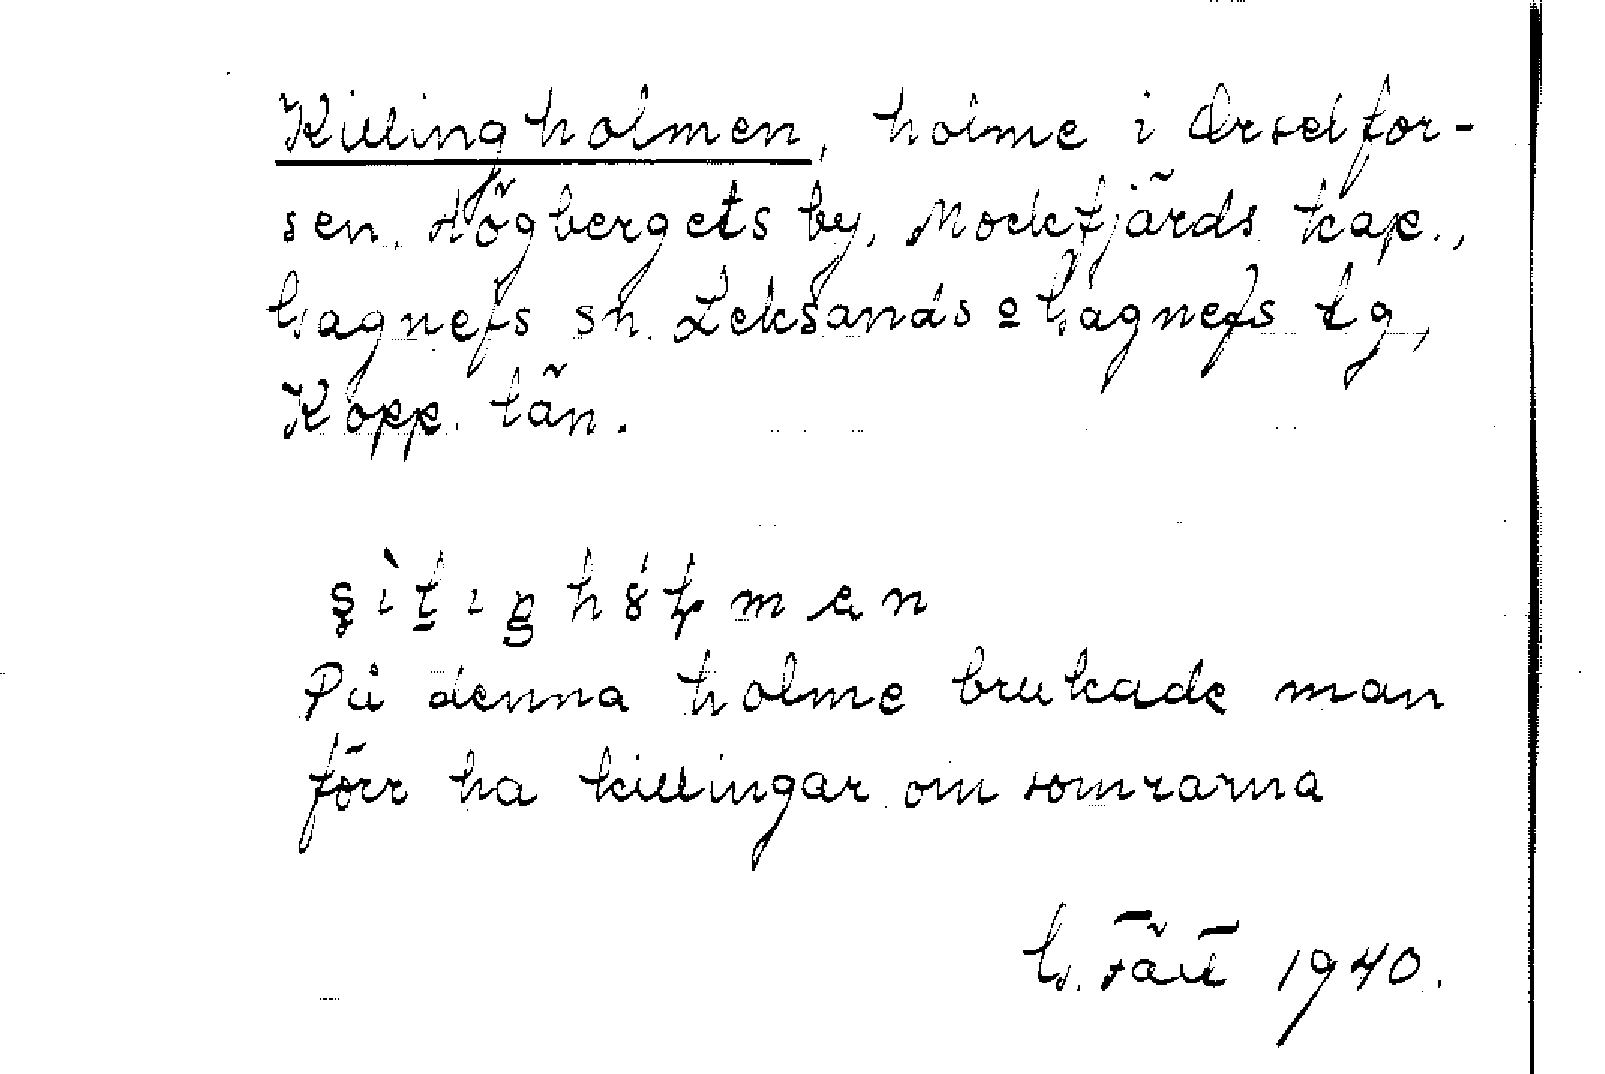 Killingholmen, holme i Orselfor-
sen, Högbergets by, Mockfjärds kap.,
Gagnefs sn. Leksands o Gagnefs tg,
Kopp. län.
På denna holme brukade man
förr ha killingar om somrarna
G. 1940.